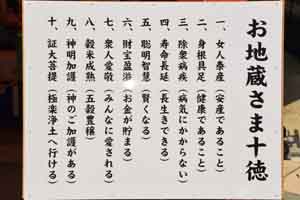 お地蔵さま十徳
一、女人泰産（安産であること）
二、身根具足（健康であること）
三、除衆病疾（病気にかからない）
四、寿命長延（長生きできる）
五、聡明智慧（賢くなる）
六、財宝盈溢（お金が貯まる）
七、衆人愛敬（みんなに愛される）
八、穀米成熟（五穀豊穣）
九、神明加護（神のご加護がある）
十、証大菩提（極楽浄土へ行ける）